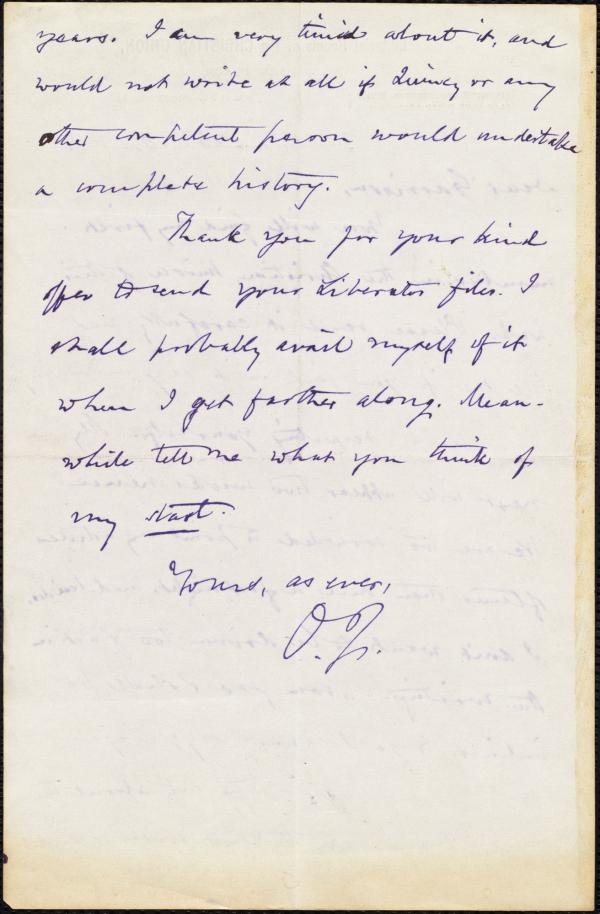 years. I am very timid about it, and
would not write at all if Quincy or any
other competent person would undertake
a complete history.
Thank you for your kind
offer to send your Liberator files. I
shall probably avail myself of it
when I get farther along. Mean-
while tell me what you think of
my start.
Yours, as ever,
O. J.